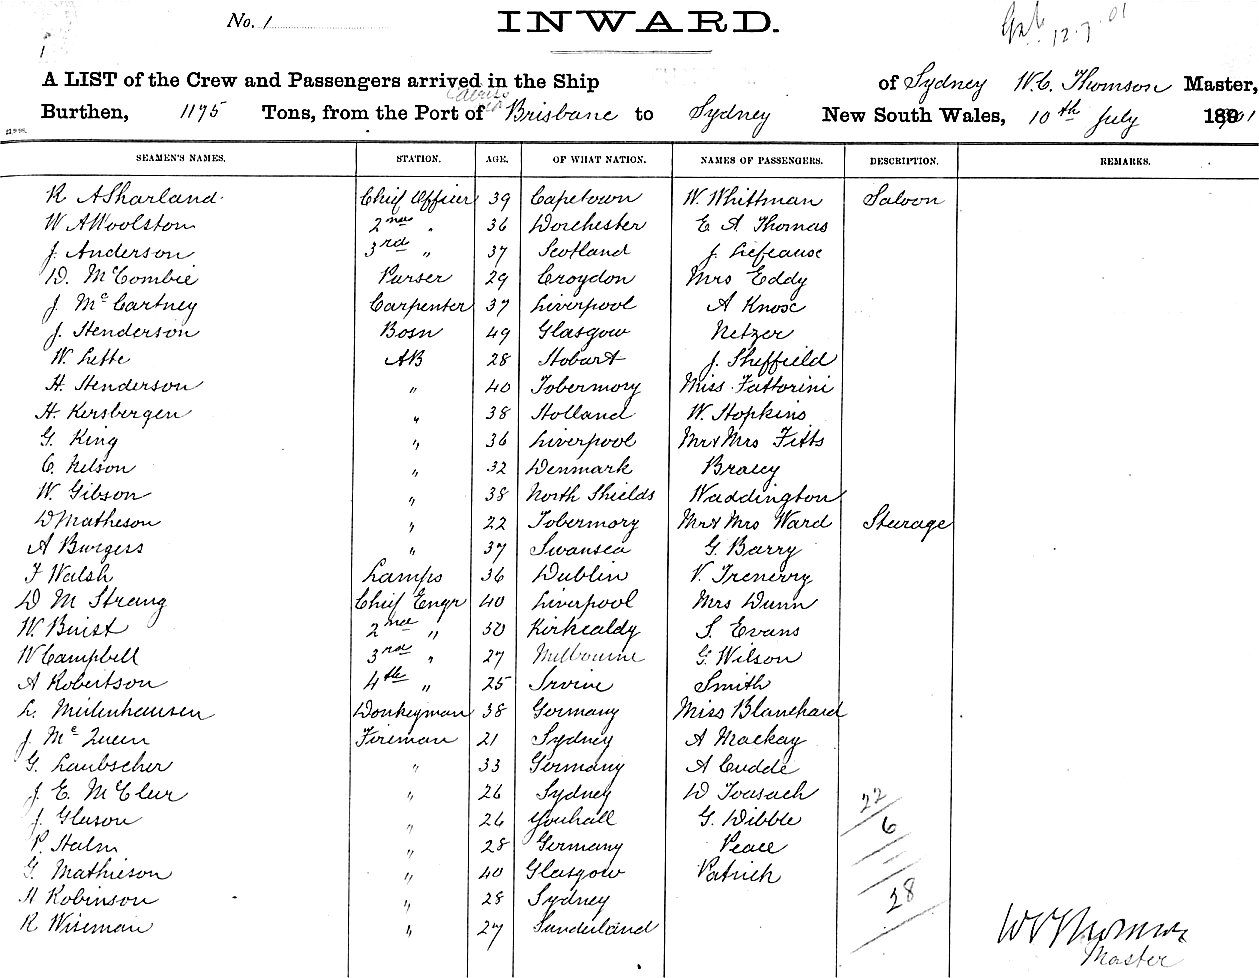 No. 1
INWARD.
12.7.01
A LIST of the Crew and Passengers arrived in the Ship of Sydney W. C. Thomson Master,
Burthen, 1175 Tons, from the Port of Cairns Brisbane to Sydney New South Wales, 10th July 1901
SEAMEN'S NAMES. STATION. AGE. OF WHAT NATION. NAMES OF PASSENGERS. DESCRIPTION. REMARKS.
R A Sharland Chief Officer 39 Capetown W. Whittman Saloon
W A Woolston 2nd " 36 Dorchester E A Thomas
J. Anderson 3rd " 37 Scotland J. Lefeause
D. McCombie Purser 29 Croydon Mrs Eddy
J. McCartney Carpenter 37 Liverpool A Knose
J. Henderson Bosn 49 Glasgow Netzer
W. Lette AB 28 Hobart J. Sheffield
H. Henderson " 40 Tobermory Miss Fattorini
H. Kersbergen " 38 Holland W. Hopkins
G. King " 36 Liverpool Mr & Mrs Fitts
C. Nelson " 32 Denmark Bracey
W. Gibson " 38 North Shields Waddington
D Matheson " 22 Tobermory Mr & Mrs Ward Sturage
A Burgess " 37 Swansea G. Barry
F Walsh Lamps 36 Dublin V. Trenerry
D M Strang Chief Engr 40 Liverpool Mrs Dunn
W. Buist 2nd " 30 Kirkcaldy S. Evans
W Campbell 3rd " 27 Melbourne G. Wilson
A Robertson 4th " 25 Irvine Smith
L. Meilenhausen Donkeyman 38 Germany Miss Blanchard
J. McQueen Fireman 21 Sydney A Mackay
G. Laubscher " 33 Germany A Cudde
J. E. McCleur " 26 Sydney D Tousach 22
J. Gleeson " 26 Youhall G. Wibble 6
P. Halm " 28 Germany Peace
G. Mathieson " 40 Glasgow Patrick
H Robinson " 28 Sydney 28
R Wiseman " 27 Sunderland
W C Thomson
Master